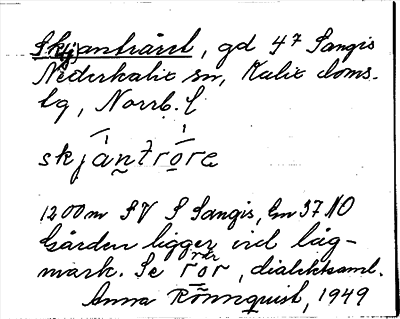 Skjanträsel, gd 4⁷ Sangis
Nederkalix sn, Kalix doms.
lg, Norrb. l
skjantrore
1200 m SV S Sangis, Em 37 NO
Gården ligger vid låg-
mark. Se rör, dialektsaml.
Anna Rönnquist, 1949